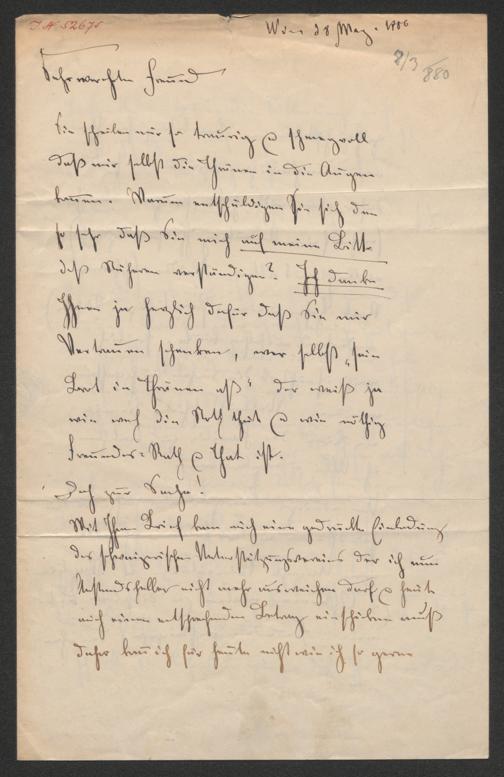 I.N. 52675
Wien 28 May. 1886
2/3 880
Sehr werther Freund
Sie schreiben mir so traurig & schmerzvoll
daß mir selbst die Thränen in die Augen
kamen. Warum entschuldigen Sie sich denn
so sehr daß Sie mich auf meine Bitte
des Näheren verständigen? Ich danke
Ihnen ja herzlich dafür daß Sie mir
Vertrauen schenken, wer selbst „sein
Brot in Thränen aß“ der weiß ja
wie weh die Noth thut & wie nöthig
Freundes-Rath & That ist.
Doch zur Sache!
Mit Ihrem Brief kam auch eine gedruckte Einladung
des schweizerischen Unterstützungsvereins der ich nun
Anstandshalber nicht mehr ausweichen darf & heute
noch einen entsprechenden Betrag einschicken muß
daher kann ich für heute nicht wie ich so gerne